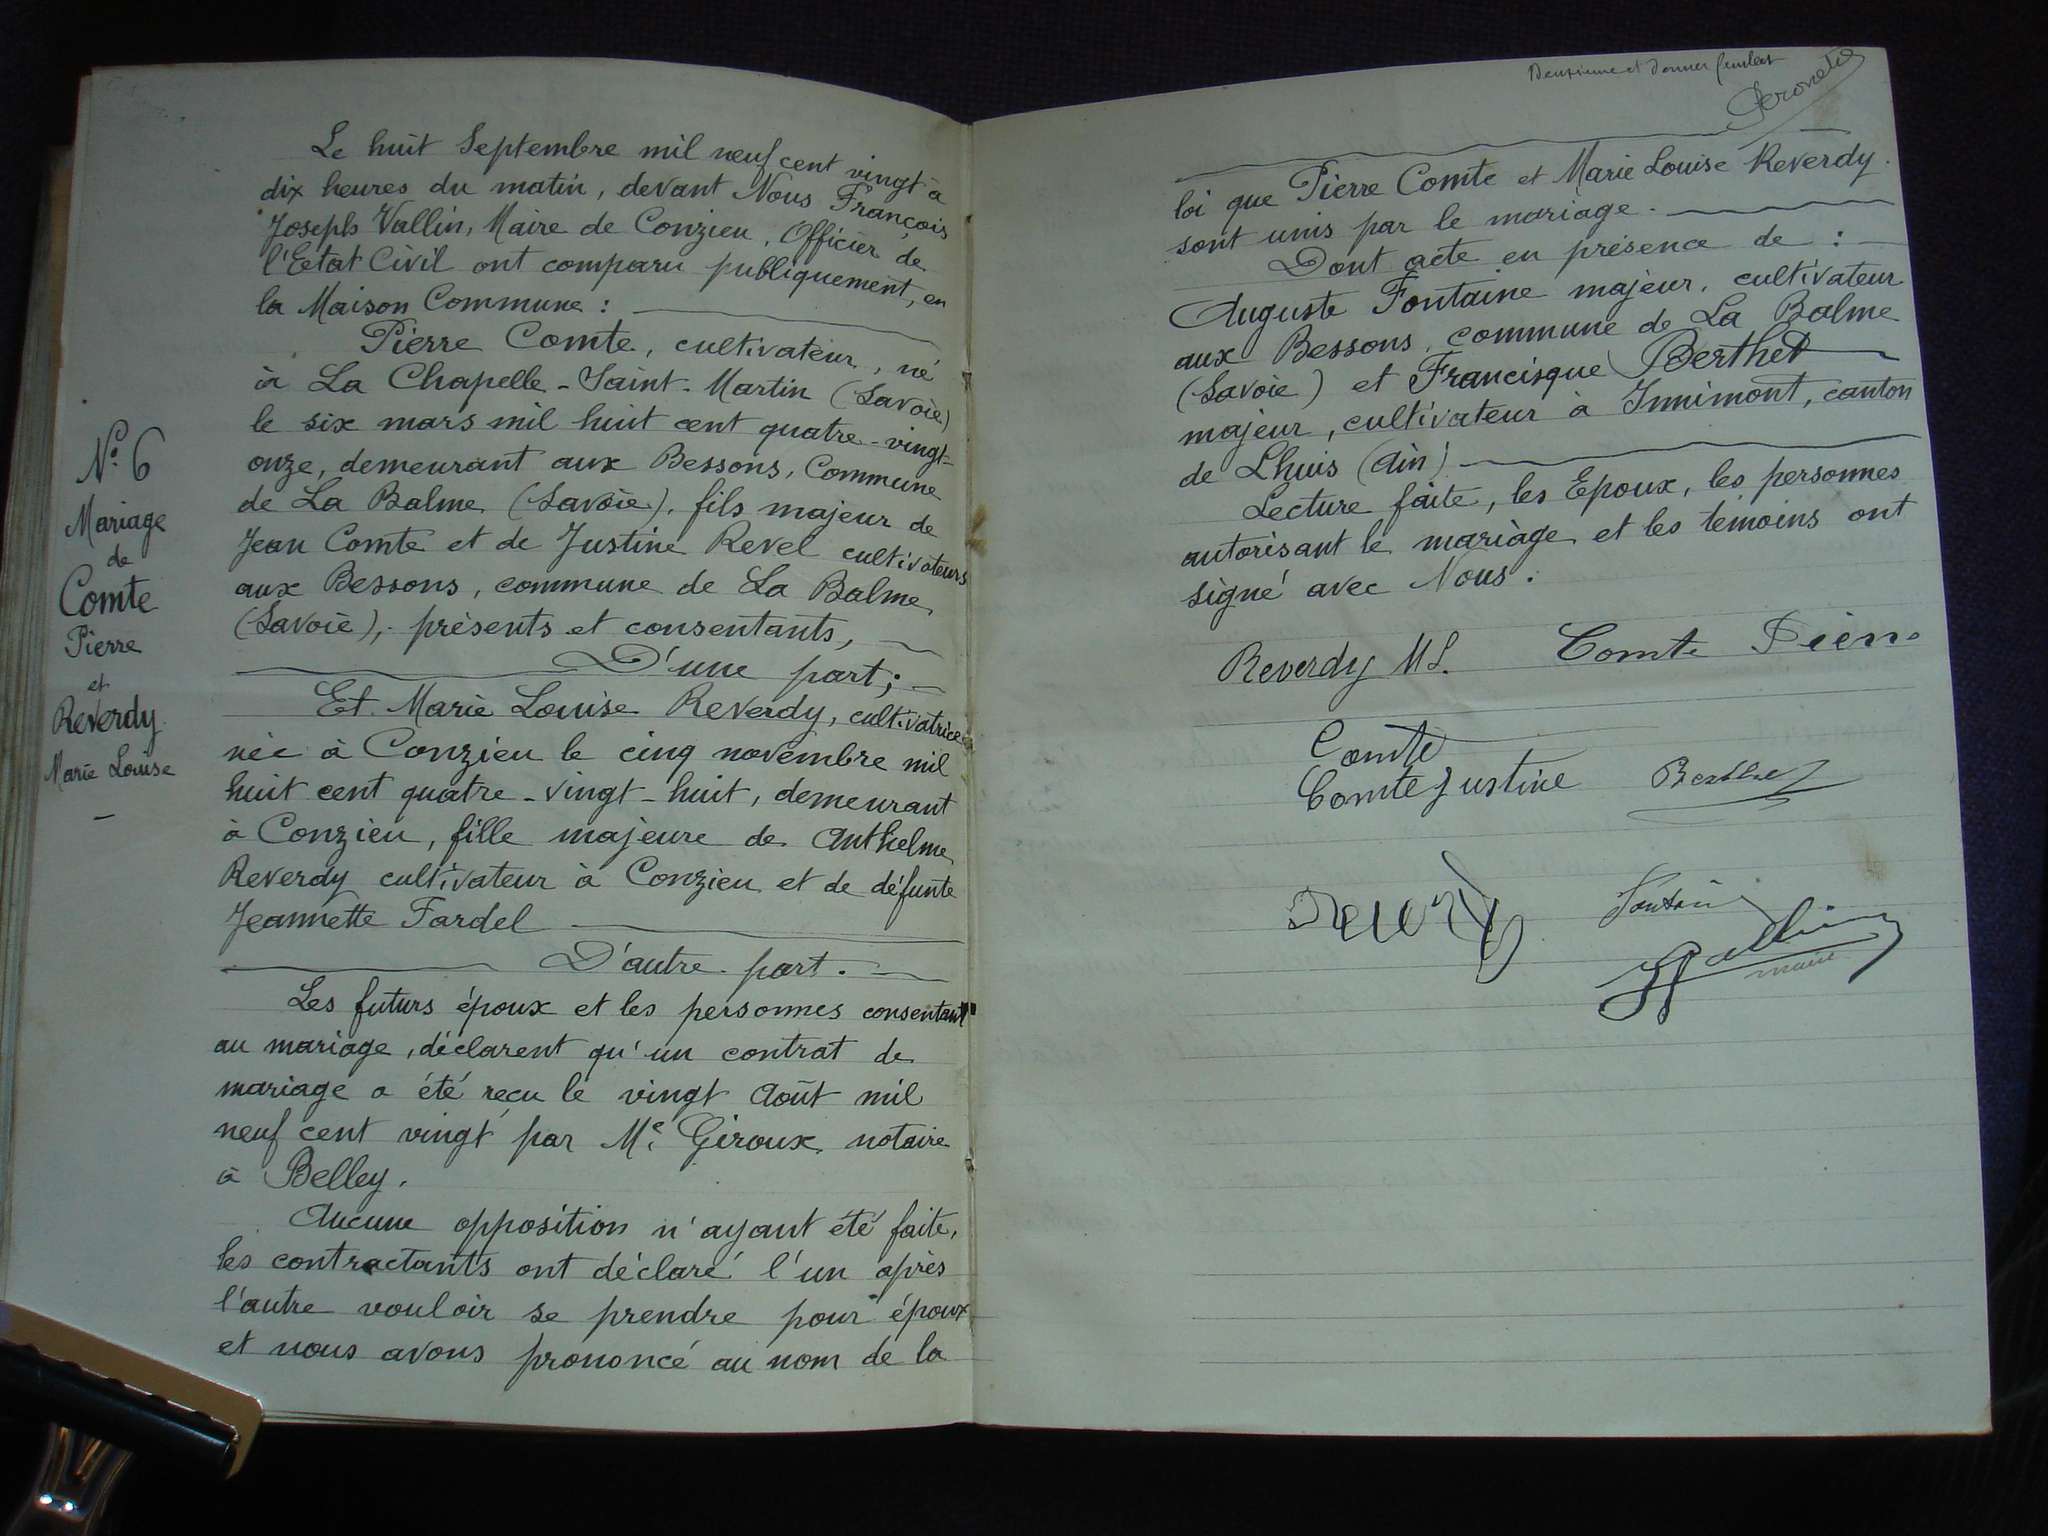 N° 6
Mariage
de
Comte
Pierre
et
Reverdy
Marie Louise
Le huit Septembre mil neuf cent vingt à
dix heures du matin, devant Nous François
Joseph Vallin, Maire de Conzieu, Officier de
l'Etat Civil ont comparu publiquement, en
la Maison Commune :
Pierre Comte, cultivateur, né
à La Chapelle-Saint-Martin (Savoie)
le six mars mil huit cent quatre-vingt-
onze, demeurant aux Bessons, Commune
de La Balme (Savoie), fils majeur de
Jean Comte et de Justine Revel cultivateurs
aux Bessons, commune de La Balme
(Savoie), présents et consentants,
D'une part ;
Et Marie Louise Reverdy, cultivatrice
née à Conzieu le cinq novembre mil
huit cent quatre-vingt-huit, demeurant
à Conzieu, fille majeure de Anthelme
Reverdy cultivateur à Conzieu et de défunte
Jeannette Fardel
D'autre part.
Les futurs époux et les personnes consentant
au mariage, déclarent qu'un contrat de
mariage a été reçu le vingt Août mil
neuf cent vingt par Me Giroux notaire
à Belley.
Aucune opposition n'ayant été faite,
les contractants ont déclaré l'un après
l'autre vouloir se prendre pour époux
et nous avons prononcé au nom de la
Deuxième et dernier feuillet
loi que Pierre Comte et Marie Louise Reverdy
sont unis par le mariage.
Dont acte en présence de :
Auguste Fontaine majeur, cultivateur
aux Bessons, commune de La Balme
(Savoie) et Francisque Berthet
majeur, cultivateur à Innimont, canton
de Lhuis (Ain)
Lecture faite, les Epoux, les personnes
autorisant le mariage et les témoins ont
signé avec Nous.
Reverdy ML. Comte Pierre
Comte
Comte Justine Berthet
Reverdy Fontaine
Vallin
maire